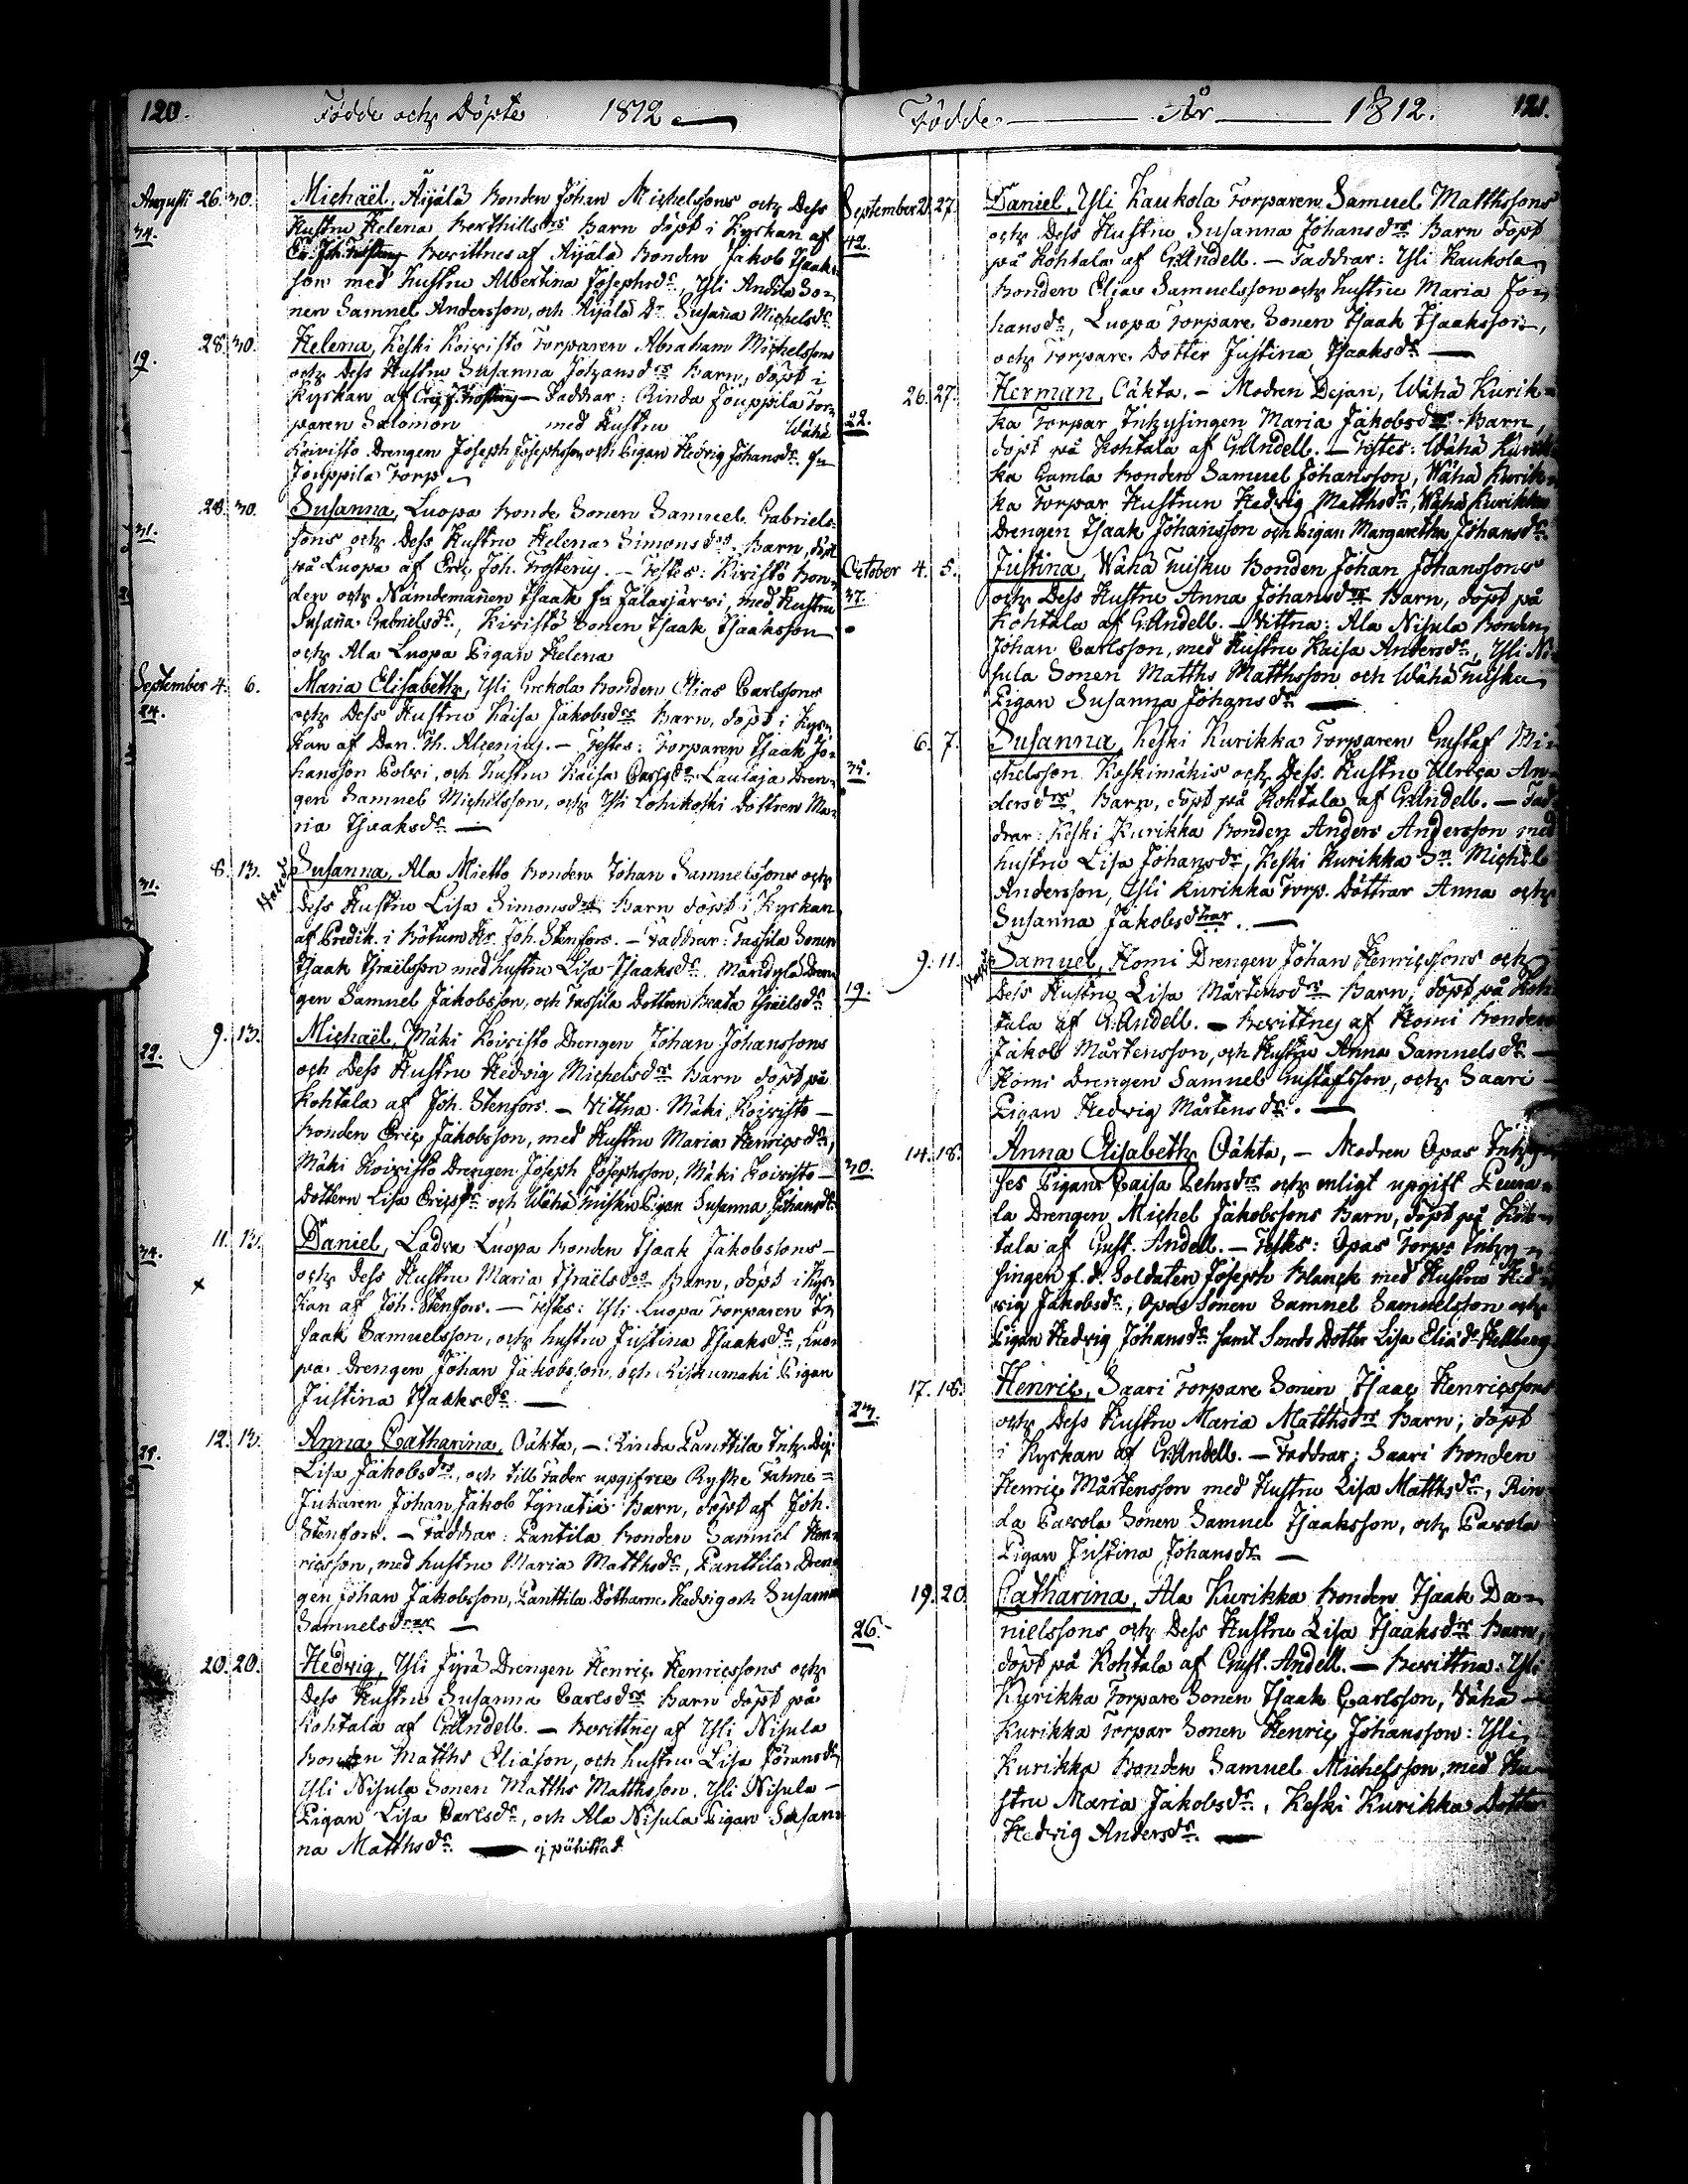 120. Födde och Döpte 1812
Augusti 26. 30. Michaël, Äijälä Bonden Johan Michelssons och Dess
34. Hustru Helena Berthillsdrs Barn döpt i Kyrkan af
Bevittnes af Äijälä Bonden Jakob Isaaks-
son med Hustru Albertina Josephsdr, Yli Andila So-
nen Samuel Andersson, och Äijälä Dr Susaña Michelsdr.
28. 30. Helena, Keski Koivisto Torparen Abraham Michelssons
19. och Dess Hustru Susanna Johansdrs Barn, döpt i
Kyrkan af Eric J. Frosterus — Faddrar: Rinda Jouppila Tor-
paren Salomon med Hustru Wähä
Koivisto Drengen Joseph Josephsson och Pigan Hedvig Johansdr. fr
Jouppila Torp
28. 30. Susanna, Luopa Bonde Sonen Samuel Gabriels-
31. sons och Dess Hustru Helena Simonsdrs Barn, döpt
på Luopa af Eric Joh. Frosterus. — Testes: Kivistö Bon-
den och Nämdemañen Isaak fr Jalasjärvi, med Hustru
Susaña Gabrielsdr, Kivistö Sonen Isaak Isaaksson
och Ala Luopa Pigan Helena
September 4. 6. Maria Elisabeth, Yli Erckola Bonden Elias Carlssons
24. och Dess Hustru Kaisa Jakobsdrs Barn, döpt i Kyr-
kan af Dan. Th. Alcenius. — Testes: Torparen Isaak Jo-
hansson Polvi, och Hustru Kaisa Carlsdr Laulaja Dren-
gen Samuel Michelsson, och Yli Lohikoski Dottren Ma-
ria Isaaksdr —
8. 13. Susanna, Ala Mietto Bonden Johan Samuelssons och
31. Dess Hustru Lisa Simonsdrs Barn döpt i Kyrkan
af Predik. i Bötum Hr Joh. Stenfors. — Faddrar: Tassila Sonen
Isaak Israëlsson med hustru Lisa Isaaksdr. Maridylä Dren-
gen Samuel Jakobsson, och Tassila Dottren Beata Israëlsdr
9. 13. Michaël, Mäki Koivisto Drengen Johan Johanssons
29. och Dess Hustru Hedvig Michelsdrs Barn döpt på
Kohtala af Joh. Stenfors. — Vittna Mäki Koivisto —
Bonden Eric Jakobsson, med Hustru Maria Henricsdr,
Mäki Koivisto Drengen Joseph Josephsson, Mäki Koivisto —
Dottern Lisa Ericsdr och Wähä Tuisku Pigan Susanna Johansdr.
11. 13. Daniel, Ladva Luopa Bonden Isaak Jakobssons —
34. och Dess Hustru Maria Israëlsdrs Barn, döpt i Kyr-
kan af Joh. Stenfors. — Testes: Yli Luopa Torparen I-
saak Samuelsson, och hustru Justina Isaaksdr, Luo-
pa Drengen Johan Jakobsson, och Riskumäki Pigan
Justina Isaaksdr —
12. 13. Anna Catharina, Oäkta, — Rinda Panttila Inh. Dej.
28. Lisa Jakobsdrs, och till Fader upgifven Ryske Fahne-
Junkaren Johan Jakob Ignatii Barn, döpt af Joh.
Stenfors. — Faddrar: Pantila Bonden Samuel Hen-
ricsson, med hustru Maria Matthsdr, Panttila Dren-
gen Johan Jakobsson, Panttila Döttrarne Hedvig och Susanna
Samuelsdrar —
20. 20. Hedvig, Yli Jyrä Drengen Henric Henricssons och
Dess Hustru Susanna Carlsdrs Barn döpt på
Kohtala af G. Andell. — Bevittnes af Yli Nisula
Bonden Matths Eliasson, och hustru Lisa Jöransdr,
Yli Nisula Sonen Matths Matthsson. Yli Nisula —
Pigan Lisa Carlsdr, och Ala Nisula Pigan Susan-
na Matthsdr.
Födde — År — 1812. 121.
September 21. 27. Daniel, Yli Kaukola Torparen Samuel Matthssons
42. och Dess Hustru Susanna Johansdrs Barn döpt
på Kohtala af G. Andell. — Faddrar: Yli Kaukola
Bonden Elias Samuelsson och hustru Maria Jo-
hansdr, Luopa Torpare Sonen Isaak Isaaksson,
och Torpare Dotter Justina Isaaksdr —
26. 27. Herman, Oäkta. — Modren Dejan, Wähä Kurik-
22. ka Torpar Inhysingen Maria Jakobsdrs Barn,
döpt på Kohtala af G. Andell. — Testes: Wähä Kurik-
ka Gamla Bonden Samuel Johansson, Wähä Kurik-
ka Torpar Hustrun Hedvig Matthsdr, Wähä Kurikka
Drengen Isaak Johansson och Pigan Margaretha Johansdr.
October 4. 5. Justina, Wähä Tuisku Bonden Johan Johanssons
37. och Dess Hustru Anna Johansdrs Barn, döpt på
Kohtala af G. Andell. — Vittna: Ala Nisula Bonden
Johan Carlsson, med Hustru Kaisa Andersdr, Yli Ni-
sula Sonen Matths Matthsson och Wähä Tuisku
Pigan Susanna Johansdr
6. 7. Susanna, Keski Kurikka Torparen Gustaf Mi-
35. chelsson Koskimäkis och Dess Hustru Ulrica An-
dersdrs Barn, döpt på Kohtala af G. Andell. — Fad-
drar: Keski Kurikka Bonden Anders Andersson med
hustru Lisa Johansdr, Keski Kurikka Sn Michel
Andersson, Yli Kurikka Torp. Döttrar Anna och
Susanna Jakobsdtrar. —
9. 11. Samuel, Komi Drengen Johan Henricssons och
19. Dess Hustru Lisa Mårtensdrs Barn, döpt på Koh-
tala af G. Andell. — Bevittnes af Komi Bonden
Jakob Mårtensson, och Hustru Anna Samuelsdr —
Komi Drengen Samuel Gustafsson, och Saari —
Pigan Hedvig Mårtensdr. —
14. 18. Anna Elisabeth, Oäkta, — Modren Opas Inhy-
30. ses Pigan Caisa Pehrsdrs och enligt upgift Peura-
la Drengen Michel Jakobssons Barn, döpt på Koh-
tala af Gust. Andell. — Testes: Opas Torps Inhy-
singen f. d. Soldaten Joseph Blanck med Hustru Hed-
vig Jakobsdr, Opas Sonen Samuel Samuelsson och
Pigan Hedvig Johansdr samt Smeds Dotter Lisa Eliædr Hellberg
17. 18. Henric, Saari Torpare Sonen Isaac Henricssons
23. och Dess Hustru Maria Matthsdrs Barn, döpt
i Kyrkan af G. Andell. — Faddrar; Saari Bonden
Henric Mårtensson med Hustru Lisa Matthsdr, Rin-
da Pavola Sonen Samuel Isaaksson, och Pavola
Pigan Justina Johansdr —
19. 20. Catharina, Ala Kurikka Bonden Isaak Da-
26. nielssons och Dess Hustru Lisa Isaaksdrs Barn,
döpt på Kohtala af Gust. Andell. — Bevittna: Yli
Kurikka Torpare Sonen Isaak Carlsson, Wähä —
Kurikka Torpar Sonen Henric Johansson: Yli
Kurikka Bonden Samuel Michelsson, med Hu-
stru Maria Jakobsdr. Keski Kurikka Dotter
Hedvig Andersdr.